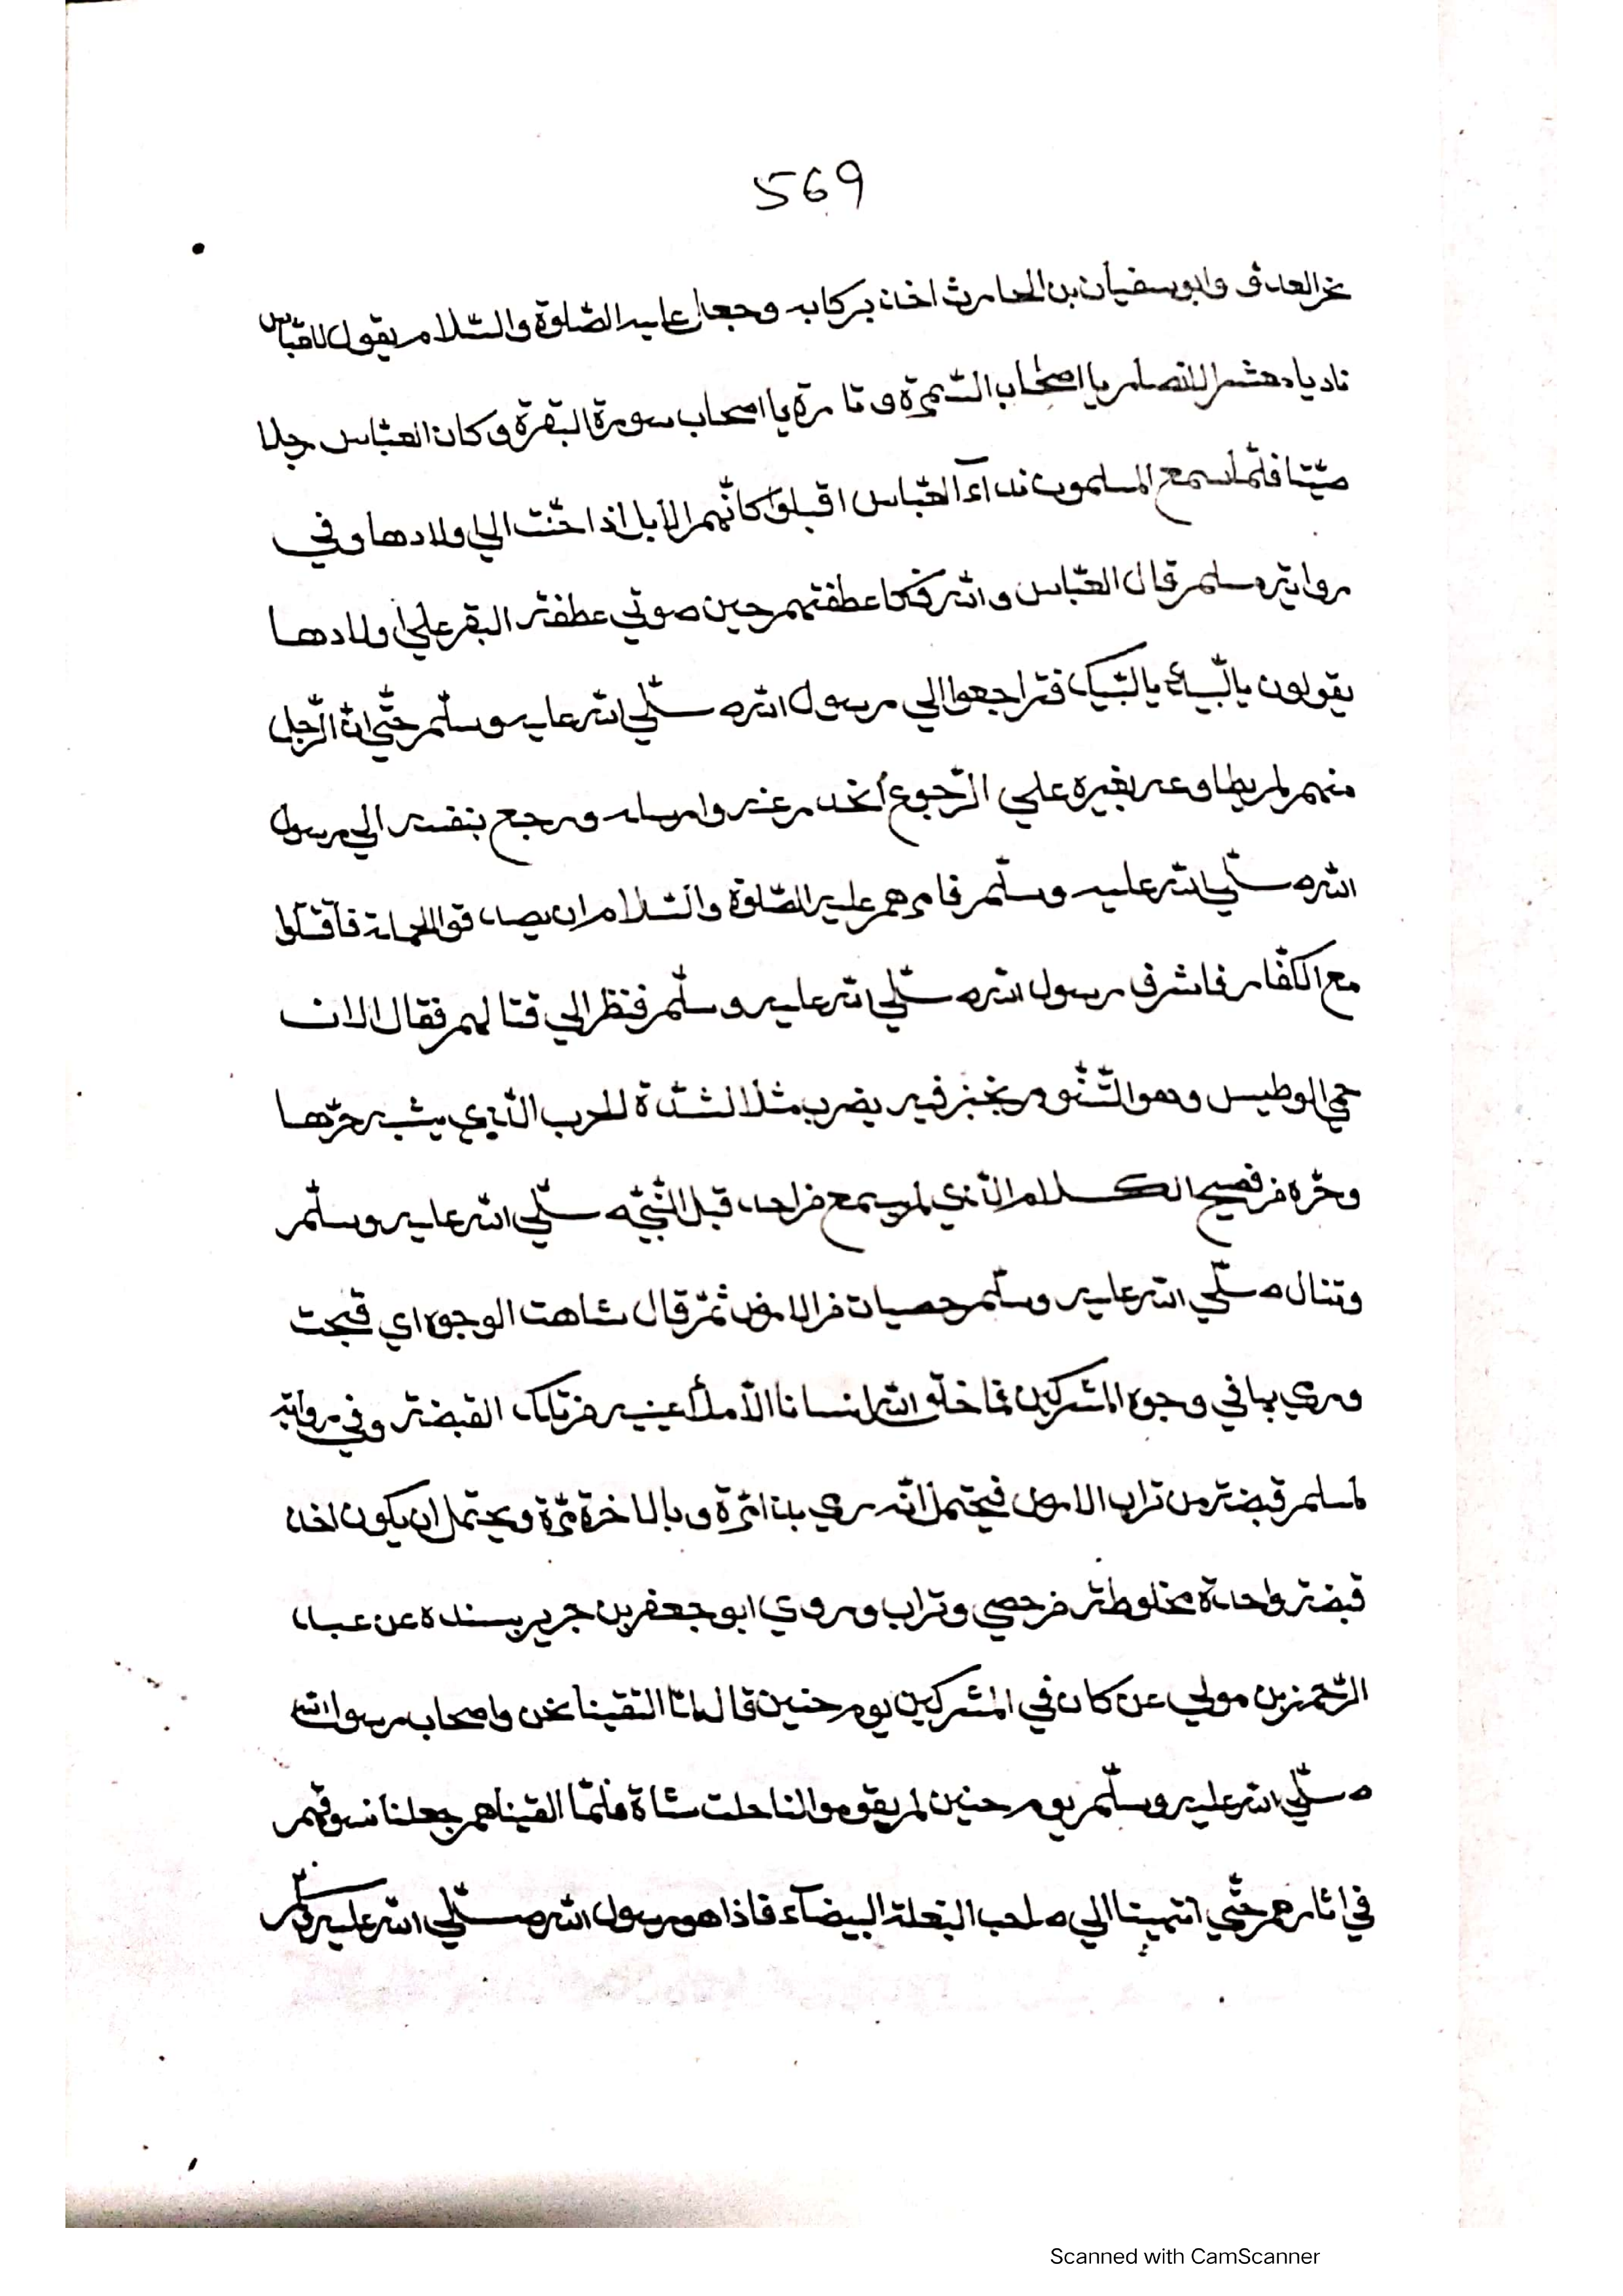 569
نحر العدو وابو سفيان بن الحارث اخذ بركابه وجعل عليه الصّلوة والسّلام يقول للعبّاس
ناد يا معشر الانصار يا اصحاب السّمرة وتارة يا اصحاب سورة البقرة وكان العبّاس رجلا
صيّتا فلمّا سمع المسلمون ندآء العبّاس اقبلوا كانّهم الابل اذا حنّت الي اولادها وفي
رواية مسلم قال العبّاس والله فكا عطفتهم حين صوتي عطفة البقر علي اولادها
يقولون يا لبّيك يا لبّيك فتراجعوا الي رسول الله صلّي الله عليه وسلّم حتّي انّ الرّجل
منهم لم يطاوعه بعيره علي الرّجوع انحدر عنه وارسله ورجع بنفسه الي رسول
الله صلّي الله عليه وسلّم فامرهم عليه الصّلوة والسّلام ان يصدقوا الحملة فاقتتلوا
مع الكفّار فاشرف رسول الله صلّي الله عليه وسلّم فنظر الي قتالهم فقال الان
حمي الوطيس وهو التّنّور يخبز فيه يضرب مثلا لشدّة للحرب الّذي يشبه حرّها
وحرّه من فصيح الكلام الّذي لم يسمع من احد قبل النّبيّ صلّي الله عليه وسلّم
وتنال صلّي الله عليه وسلّم حصيات من الارض ثمّ قال شاهت الوجوه اي قبحت
ورمي بها في وجوه المشركين فما خلق الله انسانا الّا ملأ عينيه من تلك القبضة وفي رواية
لمسلم قبضة من تراب الارض فيحتمل انّه رمي بذا مرّة وبالاخرة مرّة ويحتمل ان يكون اخذ
قبضة واحدة مخلوطة من حصي وتراب وروي ابو جعفر بن جرير بسنده عن عبد
الرّحمن بن مولي عن كان في المشركين يوم حنين قال لمّا التقينا نحن واصحاب رسول الله
صلّي الله عليه وسلّم يوم حنين لم يقوموا لنا حلت شاة فلمّا القيناهم جعلنا نسوقهم
في اثارهم حتّي انتهينا الي صاحب البغلة البيضآء فاذا هو رسول الله صلّي الله عليه وسلّم
Scanned with CamScanner